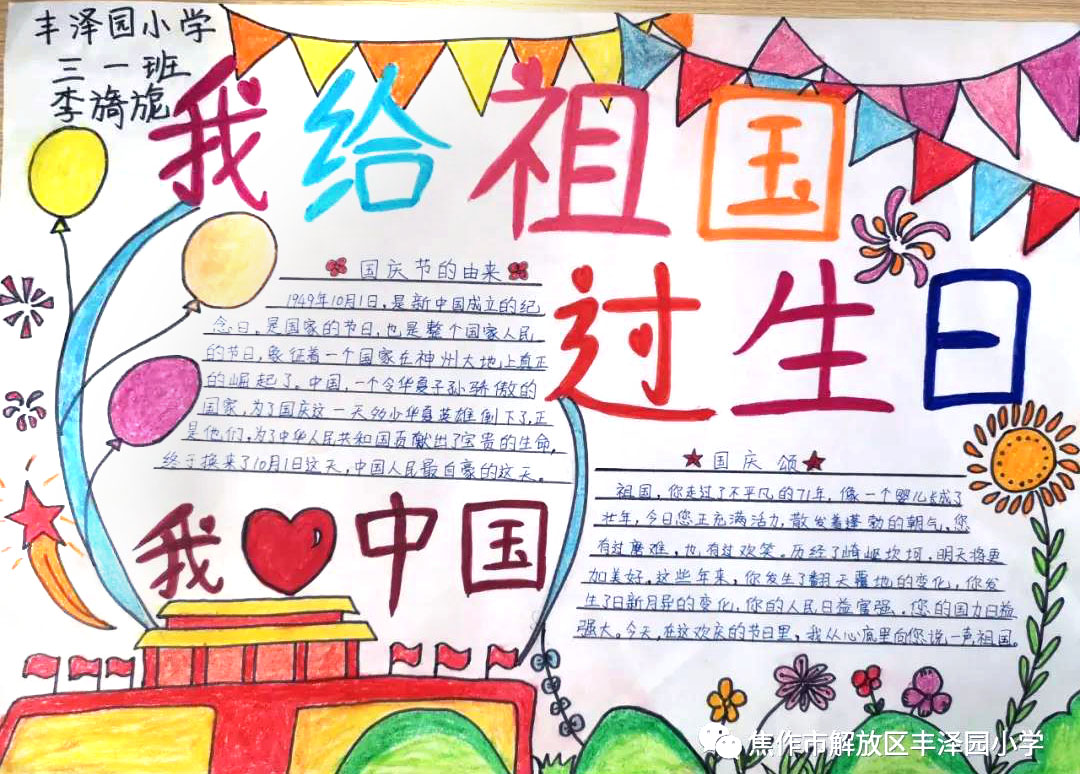 丰泽园小学
三一班
李旖旎
我给祖国
过生日
国庆节的由来
1949年10月1日,是新中国成立的纪
念日。是国家的节日,也是整个国家人民
的节日,象征着一个国家在神州大地上真正
的崛起了。中国,一个令华夏子孙骄傲的
国家,为了国庆这一天多少华夏英雄倒下了,正
是他们,为了中华人民共和国贡献出了宝贵的生命,
终于换来了10月1日这天,中国人民最自豪的这天。
我中国
国庆颂
祖国,你走过了不平凡的71年,像一个婴儿长成了
壮年,今日您正充满活力,散发着蓬勃的朝气,您
有过磨难,也有过欢笑。历经了崎岖坎坷,明天将更
加美好。这些年来,你发生了翻天覆地的变化,你发
生了日新月异的变化,你的人民日益富强,您的国力日益
强大。今天,在这欢庆的节日里,我从心底里向您说一声祖国。
焦作市解放区丰泽园小学